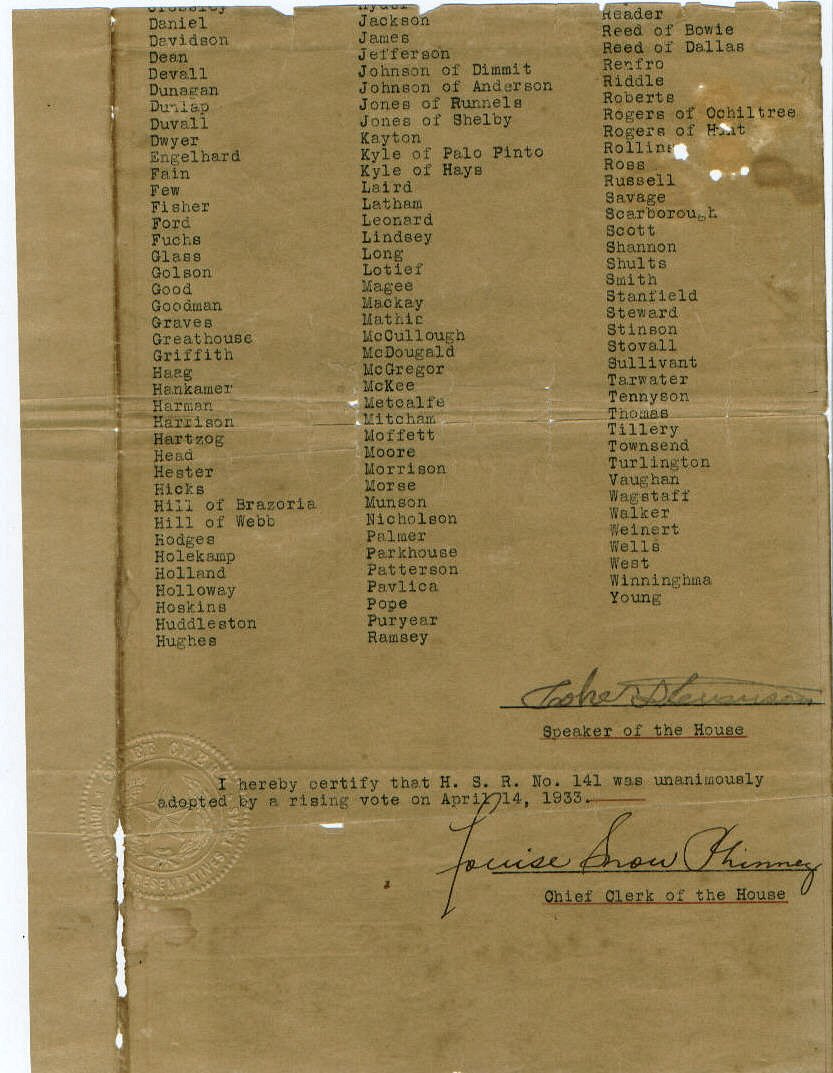 Crossley
Daniel
Davidson
Dean
Devall
Dunagan
Dunlap
Duvall
Dwyer
Engelhard
Fain
Few
Fisher
Ford
Fuchs
Glass
Golson
Good
Goodman
Graves
Greathouse
Griffith
Haag
Hankamer
Harman
Harrison
Hartzog
Head
Hester
Hicks
Hill of Brazoria
Hill of Webb
Hodges
Holekamp
Holland
Holloway
Hoskins
Huddleston
Hughes
Hyder
Jackson
James
Jefferson
Johnson of Dimmit
Johnson of Anderson
Jones of Runnels
Jones of Shelby
Kayton
Kyle of Palo Pinto
Kyle of Hays
Laird
Latham
Leonard
Lindsey
Long
Lotief
Magee
Mackay
Mathis
McCullough
McDougald
McGregor
McKee
Metcalfe
Mitcham
Moffett
Moore
Morrison
Morse
Munson
Nicholson
Palmer
Parkhouse
Patterson
Pavlica
Pope
Puryear
Ramsey
Reader
Reed of Bowie
Reed of Dallas
Renfro
Riddle
Roberts
Rogers of Ochiltree
Rogers of Hunt
Rollins
Ross
Russell
Savage
Scarborough
Scott
Shannon
Shults
Smith
Stanfield
Steward
Stinson
Stovall
Sullivant
Tarwater
Tennyson
Thomas
Tillery
Townsend
Turlington
Vaughan
Wagstaff
Walker
Weinert
Wells
West
Winninghma
Young
Coke Stevenson
Speaker of the House
I hereby certify that H. S. R. No. 141 was unanimously
adopted by a rising vote on April 14, 1933.
Louise Snow Phinney
Chief Clerk of the House
REPRESENTATIVES